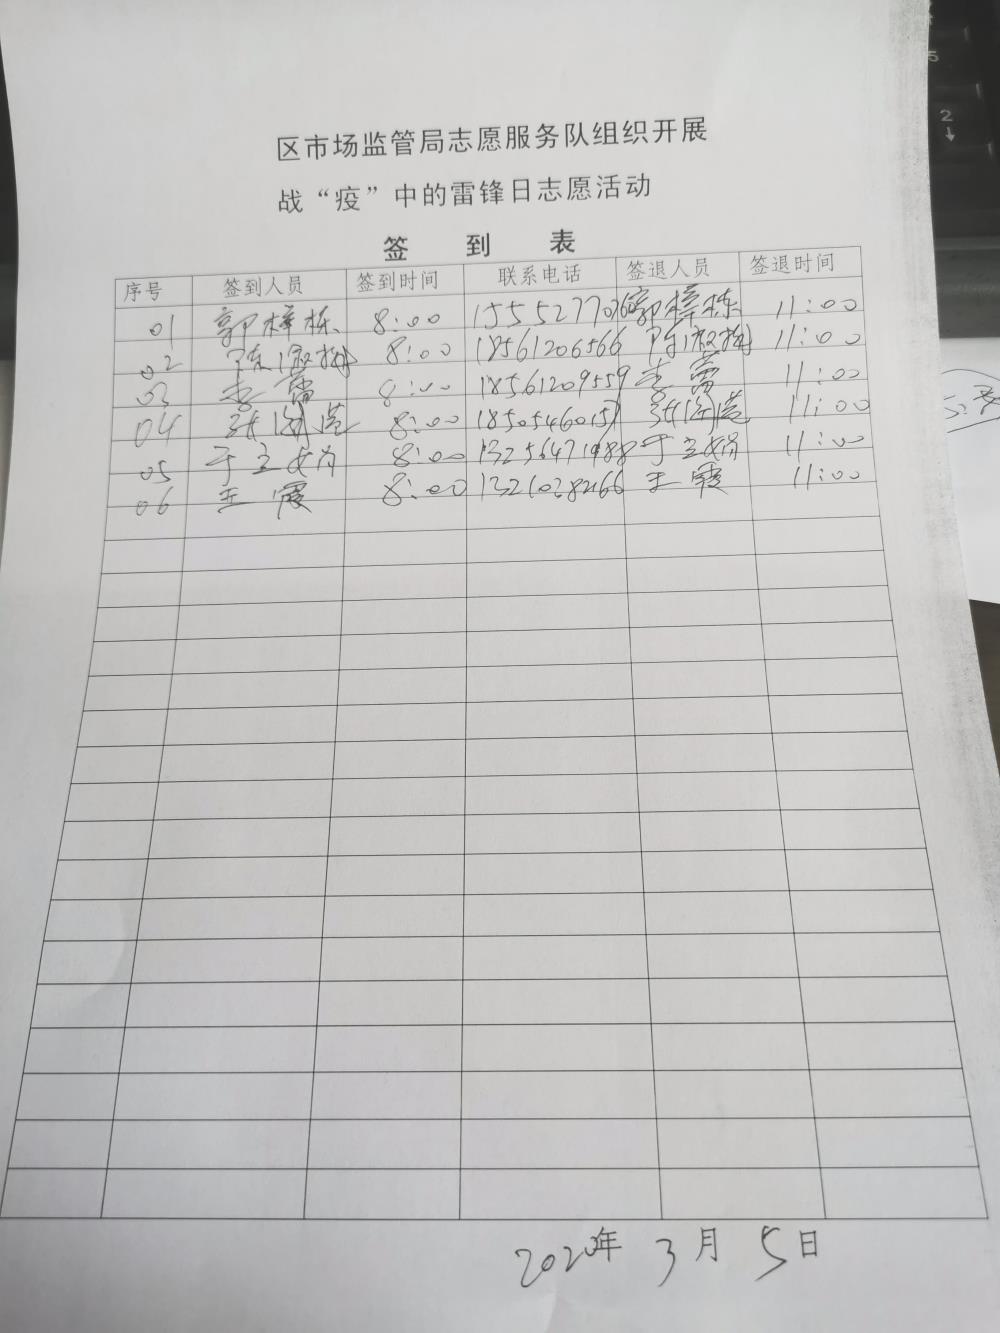 区市场监管局志愿服务队组织开展
战“疫”中的雷锋日志愿活动
签 到 表
序号 签到人员 签到时间 联系电话 签退人员 签退时间
01 郭梓栋 8:00 郭梓栋 11:00
02 陈淑梅 8:00 18561206566 陈淑梅 11:00
03 李蕾 8:00 18561209559 李蕾 11:00
04 8:00 11:00
05 于立娟 8:00 13256471988 于立娟 11:00
06 王霞 8:00 王霞 11:00
2020年 3月 5日